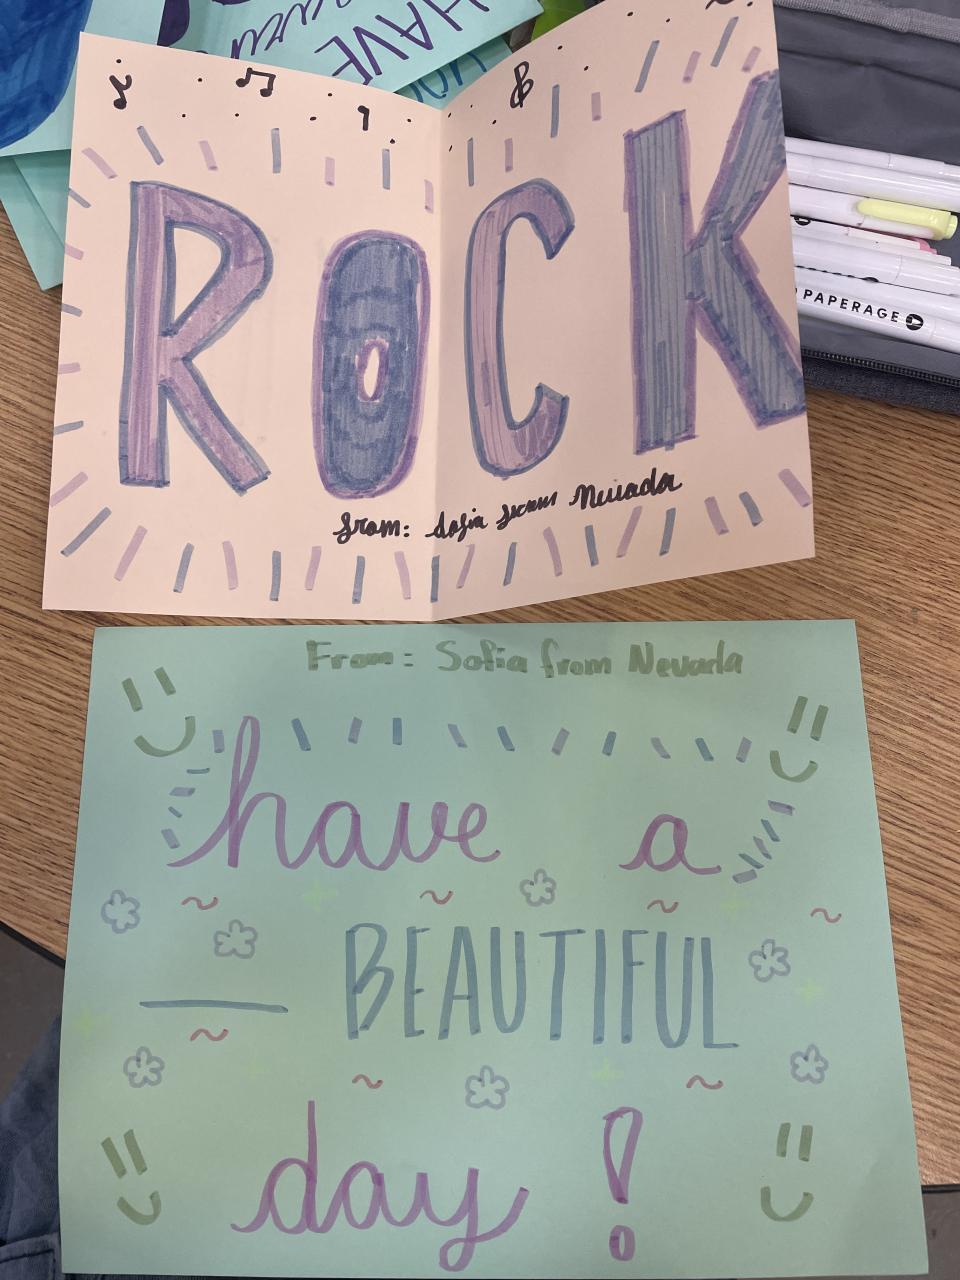 HAVE
ROCK
from: Sofia from Nevada
PAPERAGE
From: Sofia from Nevada
have a
BEAUTIFUL
day!